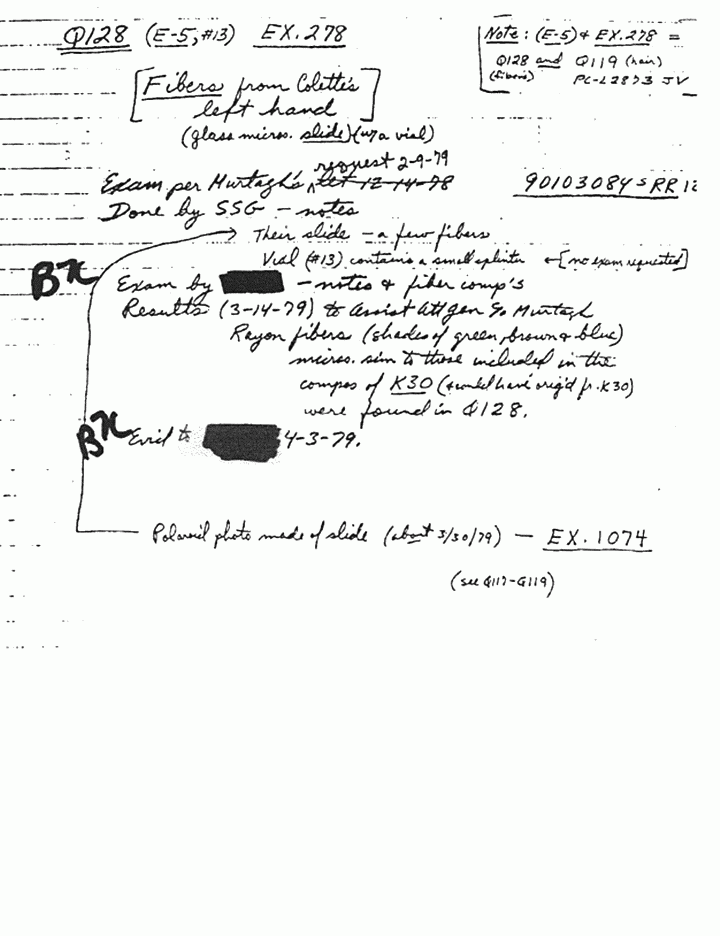 Q128 (E-5, #13) EX. 278
Note: (E-5) & EX. 278 =
Q128 and Q119 (hair)
(fibers) PC-L2873 JV
[Fibers from Colette's
left hand]
(glass micros. slide) (w/a vial)
request 2-9-79
Exam per Murtagh's let 12-14-78
90103084 S RR 12
Done by SSG - notes
Their slide - a few fibers
Vial (#13) contains a small splinter ←[no exam requested]
Exam by - notes & fiber comp's
Results (3-14-79) to Assist Att Gen Murtagh
Rayon fibers (shades of green, brown & blue)
micros. sim to those included in the
compos of K30 (& could have orig'd fr. K30)
were found in Q128.
Evid to 4-3-79.
Polaroid photo made of slide (about 3/30/79) - EX. 1074
(see Q117-Q119)